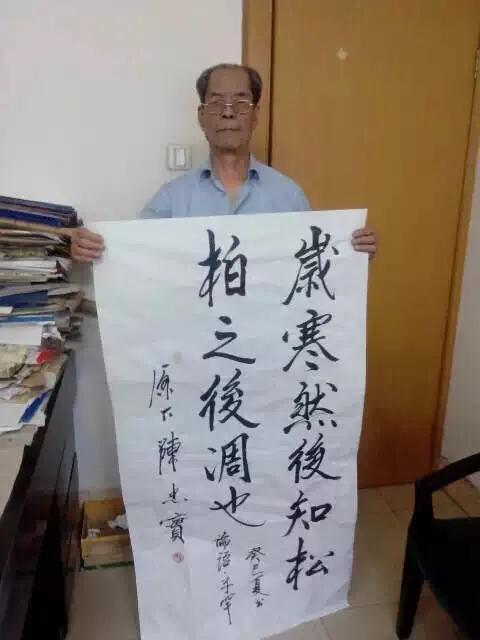 歲寒然後知松
柏之後凋也
癸巳夏
論語·子罕
原下陳忠實